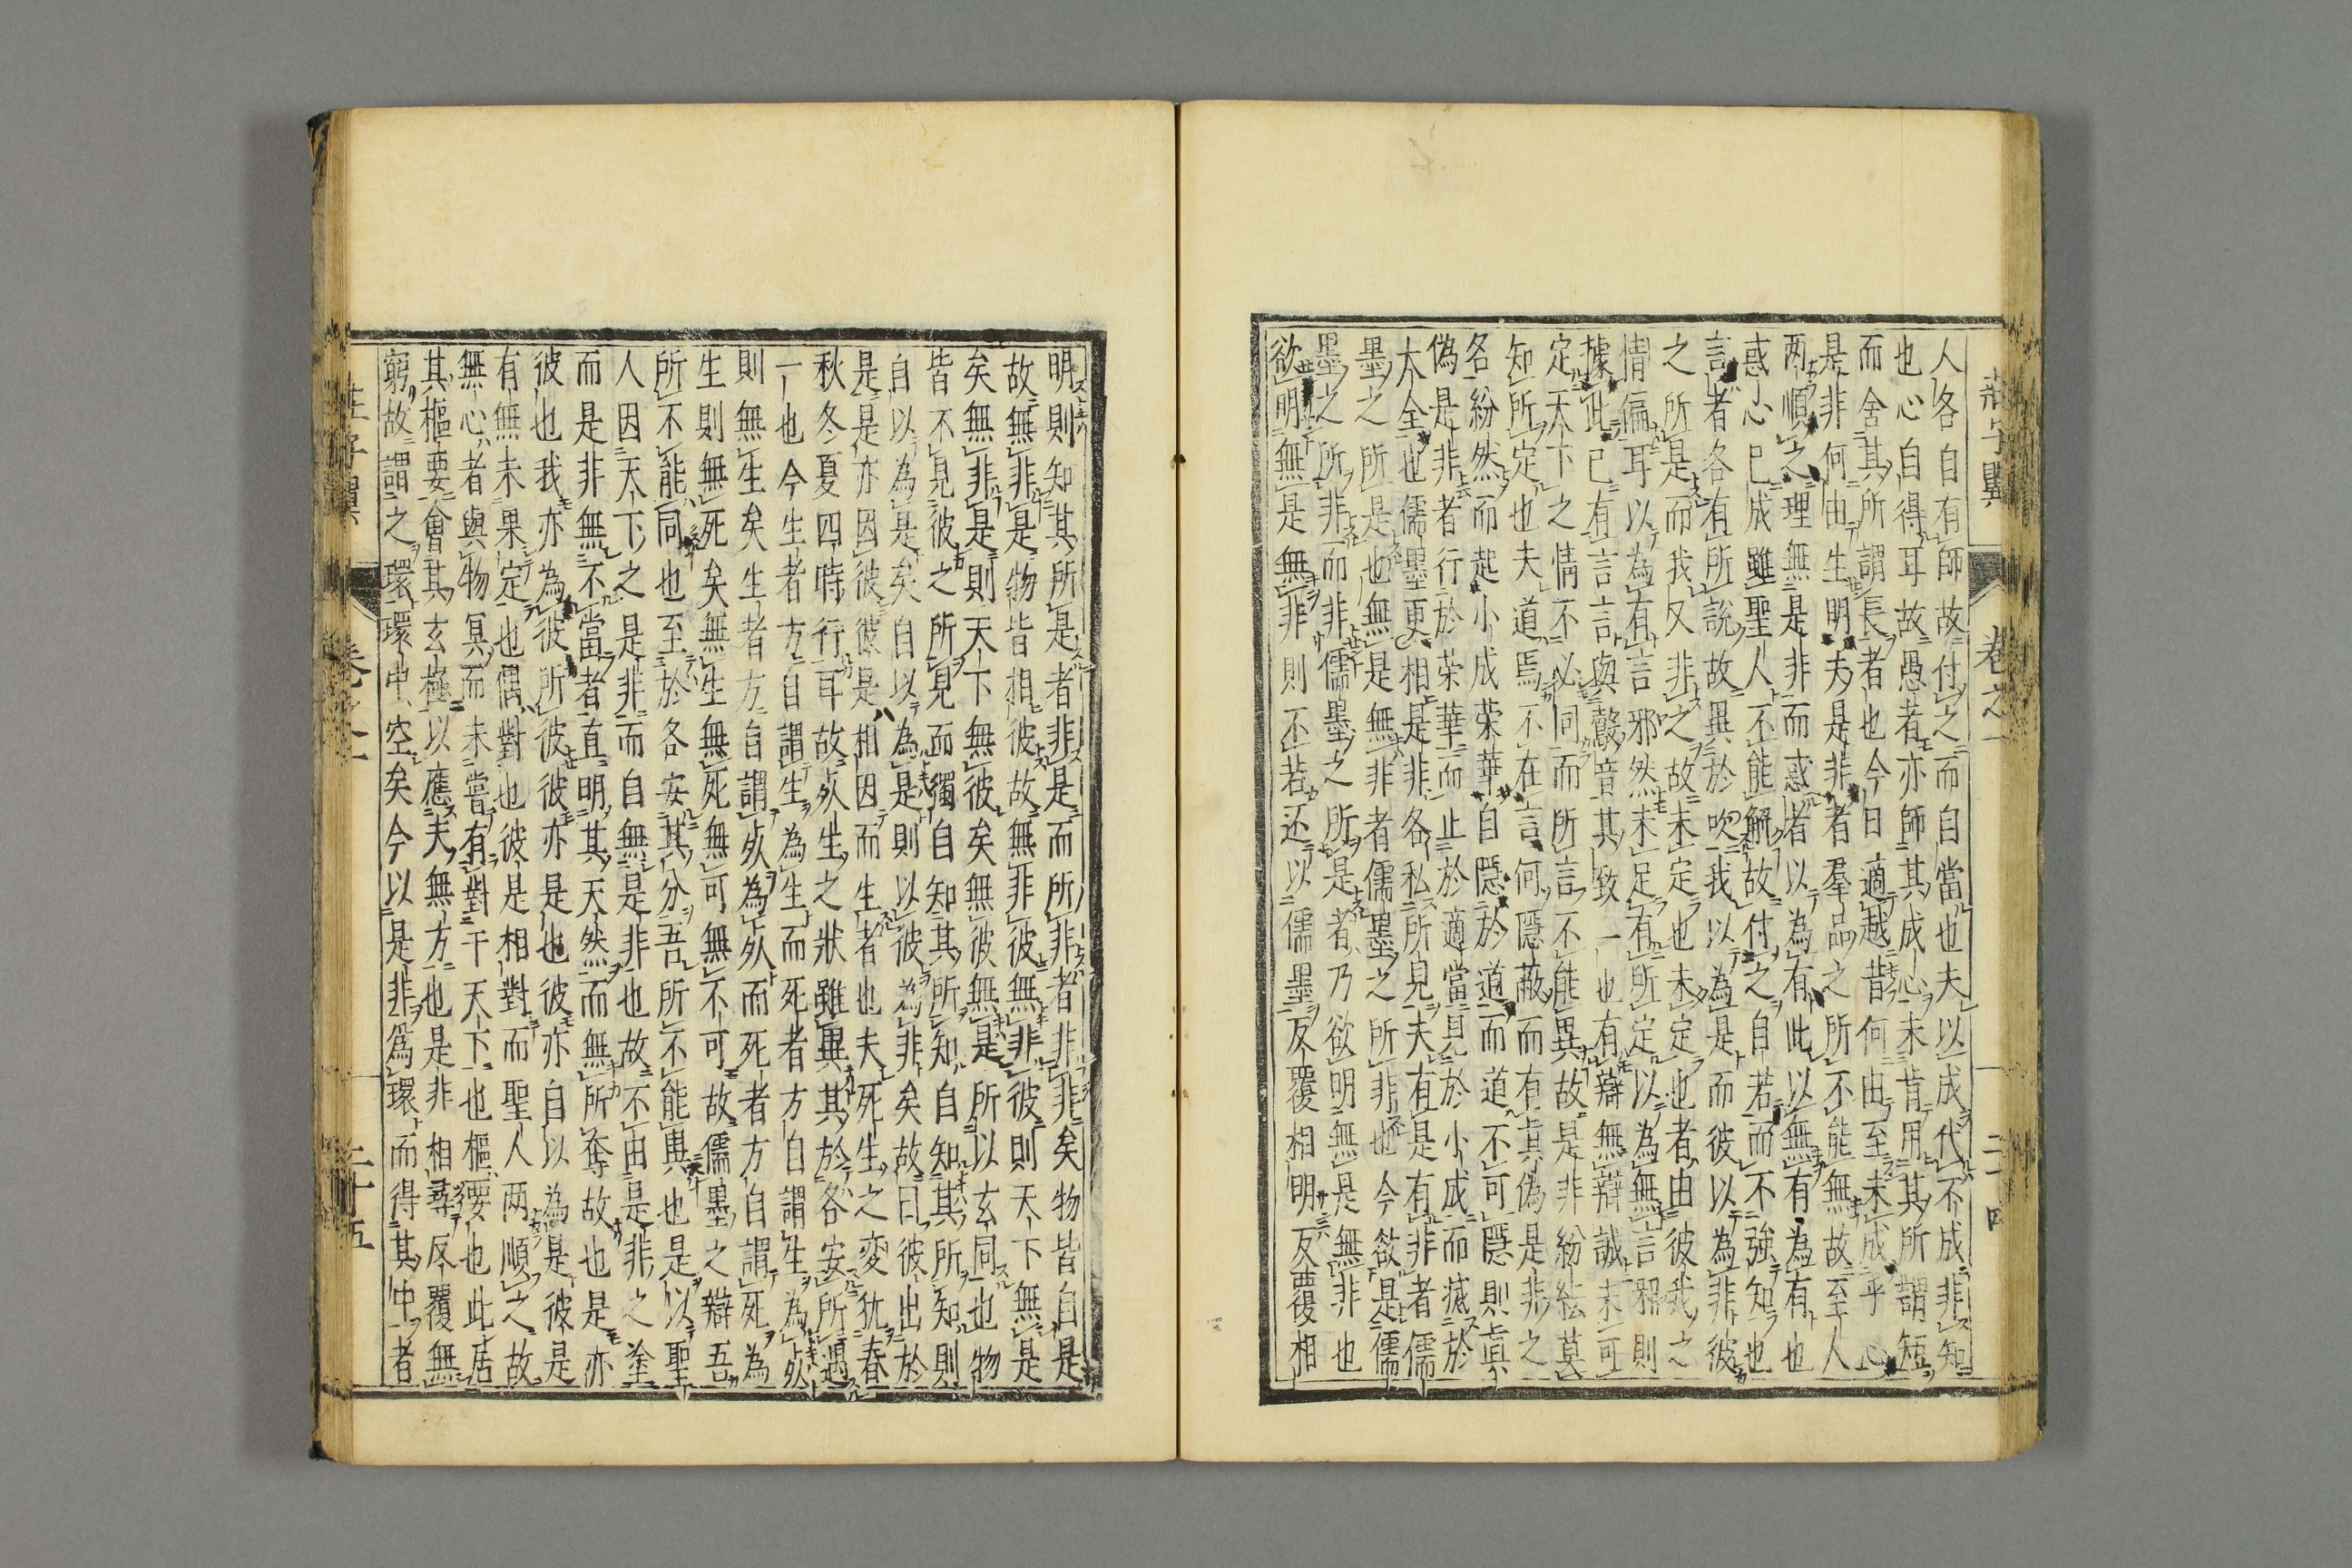 人各自有師故付之而自當也夫以成代不成非知
也心自得耳故愚者亦師其成心未肯用其所謂短
而舍其所謂長者也今日適越昔何由至未成乎心
是非何由生明夫是非者羣品之所不能無故至人
两順之理無是非而惑者以為有此以無有為有也
惑心已成雖聖人不能解故付之自若而不強知也
言者各有所說故異於吹我以為是而彼以為非彼
之所是而我又非之故未定也未定也者由彼我之
情偏耳以為有言邪然未足有所定以為無言邪則
據此已有言言與鷇音其致一也有辯無辯誠未可
定天下之情不必同而所言不能異故是非紛紜莫
知所定也夫道焉不在言何隱蔽而有真偽是非之
名紛然而起小成荣華自隱於道而道不可隱則真
偽是非者行於荣華而止於適當見於小成而滅於
大全也儒墨更相是非各私所見夫有是有非者儒
墨之所是也無是無非者儒墨之所非也今欲是儒
墨之所非而非儒墨之所是者乃欲明無是無非也
欲明無是無非則不若还以儒墨反覆相明反覆相
莊子翼
卷之一
二十四
明則知其所是者非是而所非者非非矣物皆自是
故無非是物皆相彼故無非彼無非彼則天下無是
矣無非是則天下無彼矣無彼無是所以玄同也物
皆不見彼之所見而獨自知其所知自知其所知則
自以為是矣自以為是則以彼為非矣故曰彼出於
是是亦因彼彼是相因而生者也夫死生之変犹春
秋冬夏四時行耳故死生之狀雖異其於各安所遇
一也今生者方自謂生為生而死者方自謂生為死
則無生矣生者方自謂死為死而死者方自謂死為
生則無死矣無生無死無可無不可故儒墨之辯吾
所不能同也至於各安其分吾所不能異也是以聖
人因天下之是非而自無是非也故不由是非之塗
而是非無不當者直明其天然而無所奪故也是亦
彼也我亦為彼所彼彼亦是也彼亦自以為是彼是
有無未果定也偶對也彼是相對而聖人两順之故
無心者與物冥而未嘗有對于天下也樞要也此居
其樞要會其玄極以應夫無方也是非相尋反覆無
窮故謂之環環中空矣今以是非為環而得其中者
莊子翼
卷之一
二十五